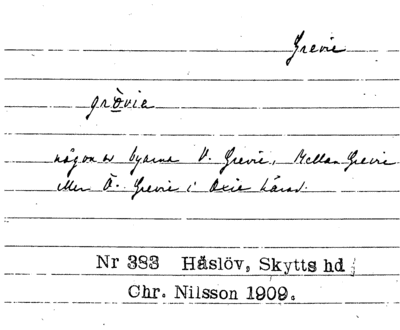 Grevie
gròvie
någon av byarna V. Grevie, Mellan Grevie
eller Ö. Grevie i Oxie härad.
Nr 383 Håslöv, Skytts hd
Chr. Nilsson 1909.